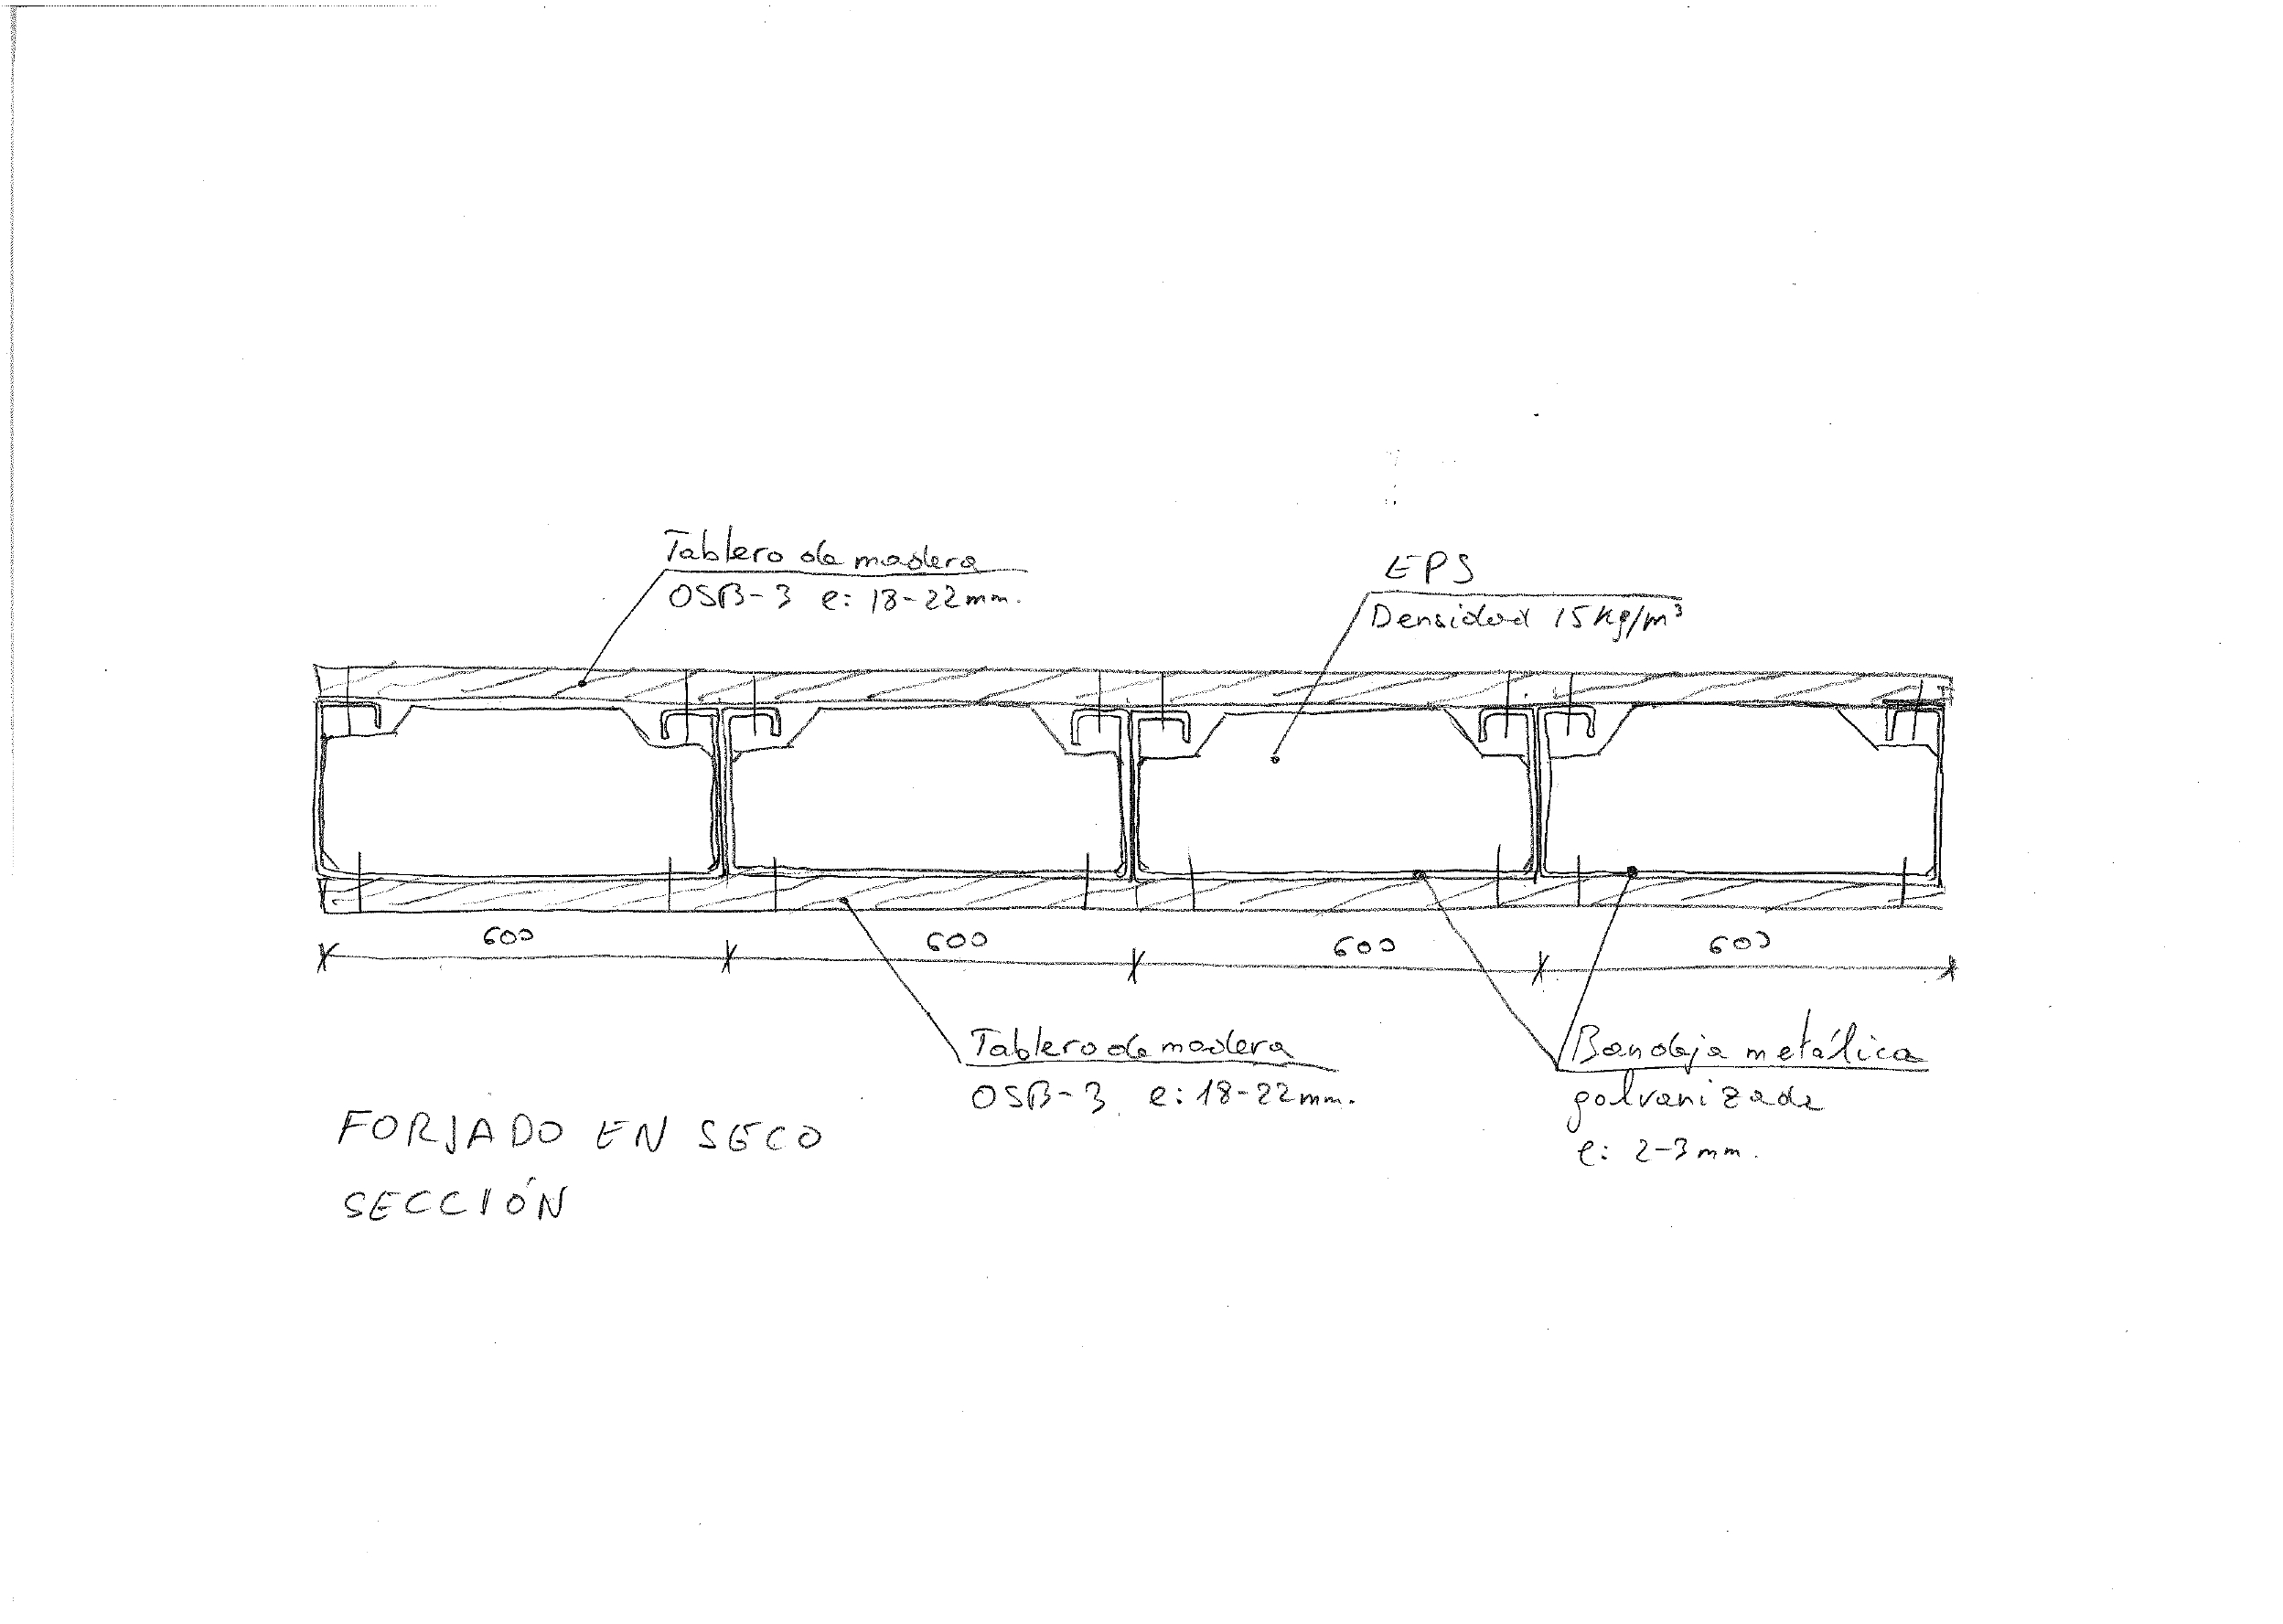 Tablero de madera
OSB-3 e: 18-22mm.
EPS
Densidad 15kg/m³
600
600
600
600
Tablero de madera
OSB-3 e: 18-22mm.
Bandeja metálica
galvanizada
e: 2-3mm.
FORJADO EN SECO
SECCIÓN